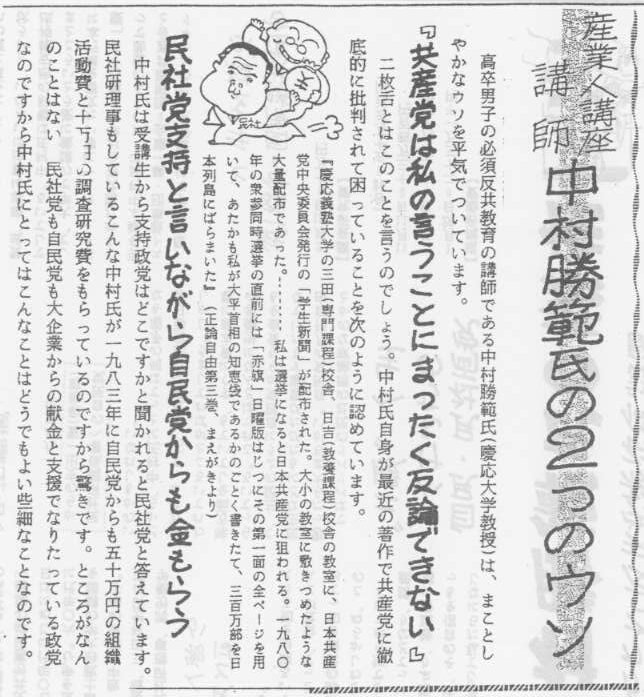 産業人講座
講師
中村勝範氏の2つのウソ
高卒男子の必須反共教育の講師である中村勝範氏(慶応大学教授)は、まことし
やかなウソを平気でついています。
『共産党は私の言うことにまったく反論できない』
二枚舌とはこのことを言うのでしょう。中村氏自身が最近の著作で共産党に徹
底的に批判されて困っていることを次のように認めています。
『慶応義塾大学の三田(専門課程)校舎、日吉(教養課程)校舎の教室に、日本共産
党中央委員会発行の「学生新聞」が配布された。大小の教室に敷きつめたような
大量配布であった。……… 私は選挙になると日本共産党に狙われる。一九八〇
年の衆参同時選挙の直前には「赤旗」日曜版はじつにその第一面の全ページを用
いて、あたかも私が大平首相の知恵袋であるかのごとく書きたて、三百万部を日
本列島にばらまいた』(正論自由第三巻、まえがきより)
民社
民社党支持と言いながら自民党からも金もらう
中村氏は受講生から支持政党はどこですかと聞かれると民社党と答えています。
民社研理事もしているこんな中村氏が一九八三年に自民党からも五十万円の組織
活動費と十万円の調査研究費をもらっているのですから驚きです。ところがなん
のことはない 民社党も自民党も大企業からの献金と支援でなりたっている政党
なのですから中村氏にとってはこんなことはどうでもよい些細なことなのです。